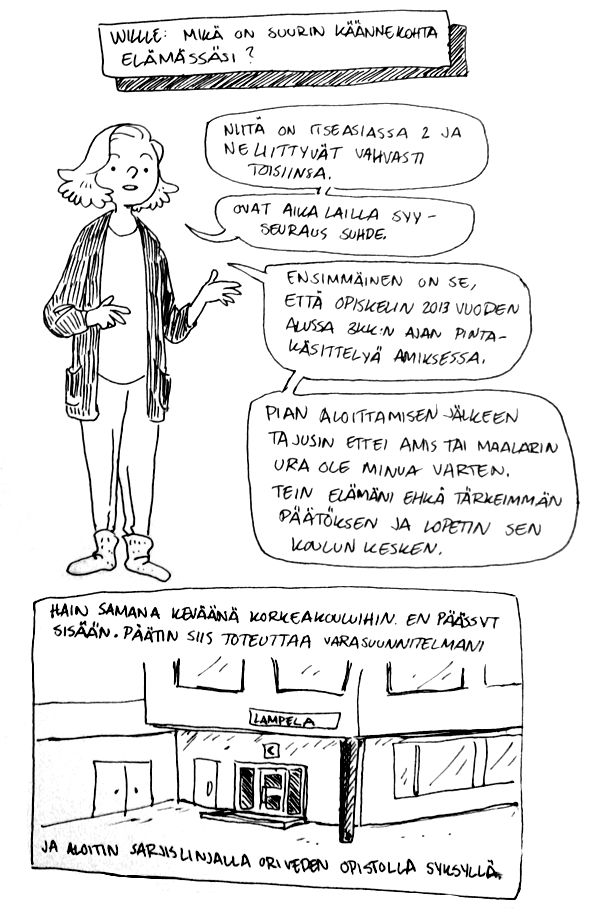 WILLE: MIKÄ ON SUURIN KÄÄNNEKOHTA
ELÄMÄSSÄSI?
NIITÄ ON ITSEASIASSA 2 JA
NE LIITTYVÄT VAHVASTI
TOISIINSA.
OVAT AIKA LAILLA SYY-
SEURAUS SUHDE.
ENSIMMÄINEN ON SE,
ETTÄ OPISKELIN 2013 VUODEN
ALUSSA 3KK:N AJAN PINTA-
KÄSITTELYÄ AMIKSESSA.
PIAN ALOITTAMISEN JÄLKEEN
TAJUSIN ETTEI AMIS TAI MAALARIN
URA OLE MINUA VARTEN.
TEIN ELÄMÄNI EHKÄ TÄRKEIMMÄN
PÄÄTÖKSEN JA LOPETIN SEN
KOULUN KESKEN.
HAIN SAMANA KEVÄÄNÄ KORKEAKOULUIHIN. EN PÄÄSSYT
SISÄÄN. PÄÄTIN SIIS TOTEUTTAA VARASUUNNITELMANI
LAMPELA
JA ALOITIN SARJISLINJALLA ORIVEDEN OPISTOLLA SYKSYLLÄ.